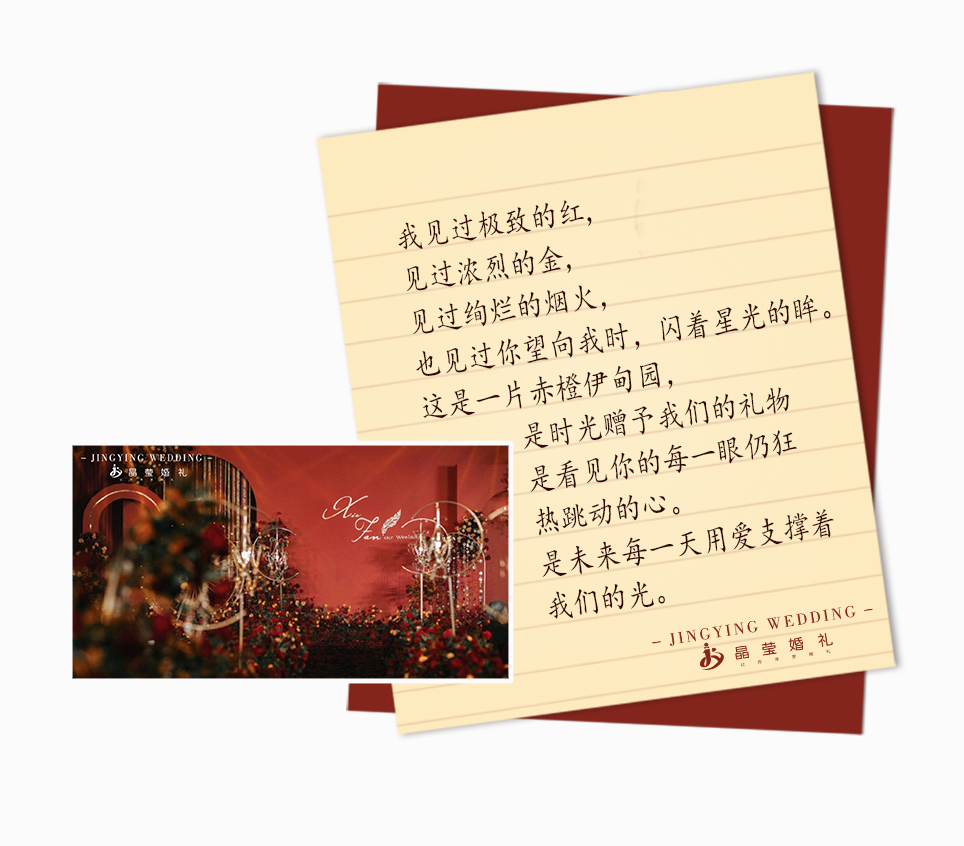 我见过极致的红，
见过浓烈的金，
见过绚烂的烟火，
也见过你望向我时，闪着星光的眸。
这是一片赤橙伊甸园，
是时光赠予我们的礼物
是看见你的每一眼仍狂
热跳动的心。
是未来每一天用爱支撑着
我们的光。
– JINGYING WEDDING –
晶莹婚礼
– JINGYING WEDDING –
晶莹婚礼
Xiu
Fan